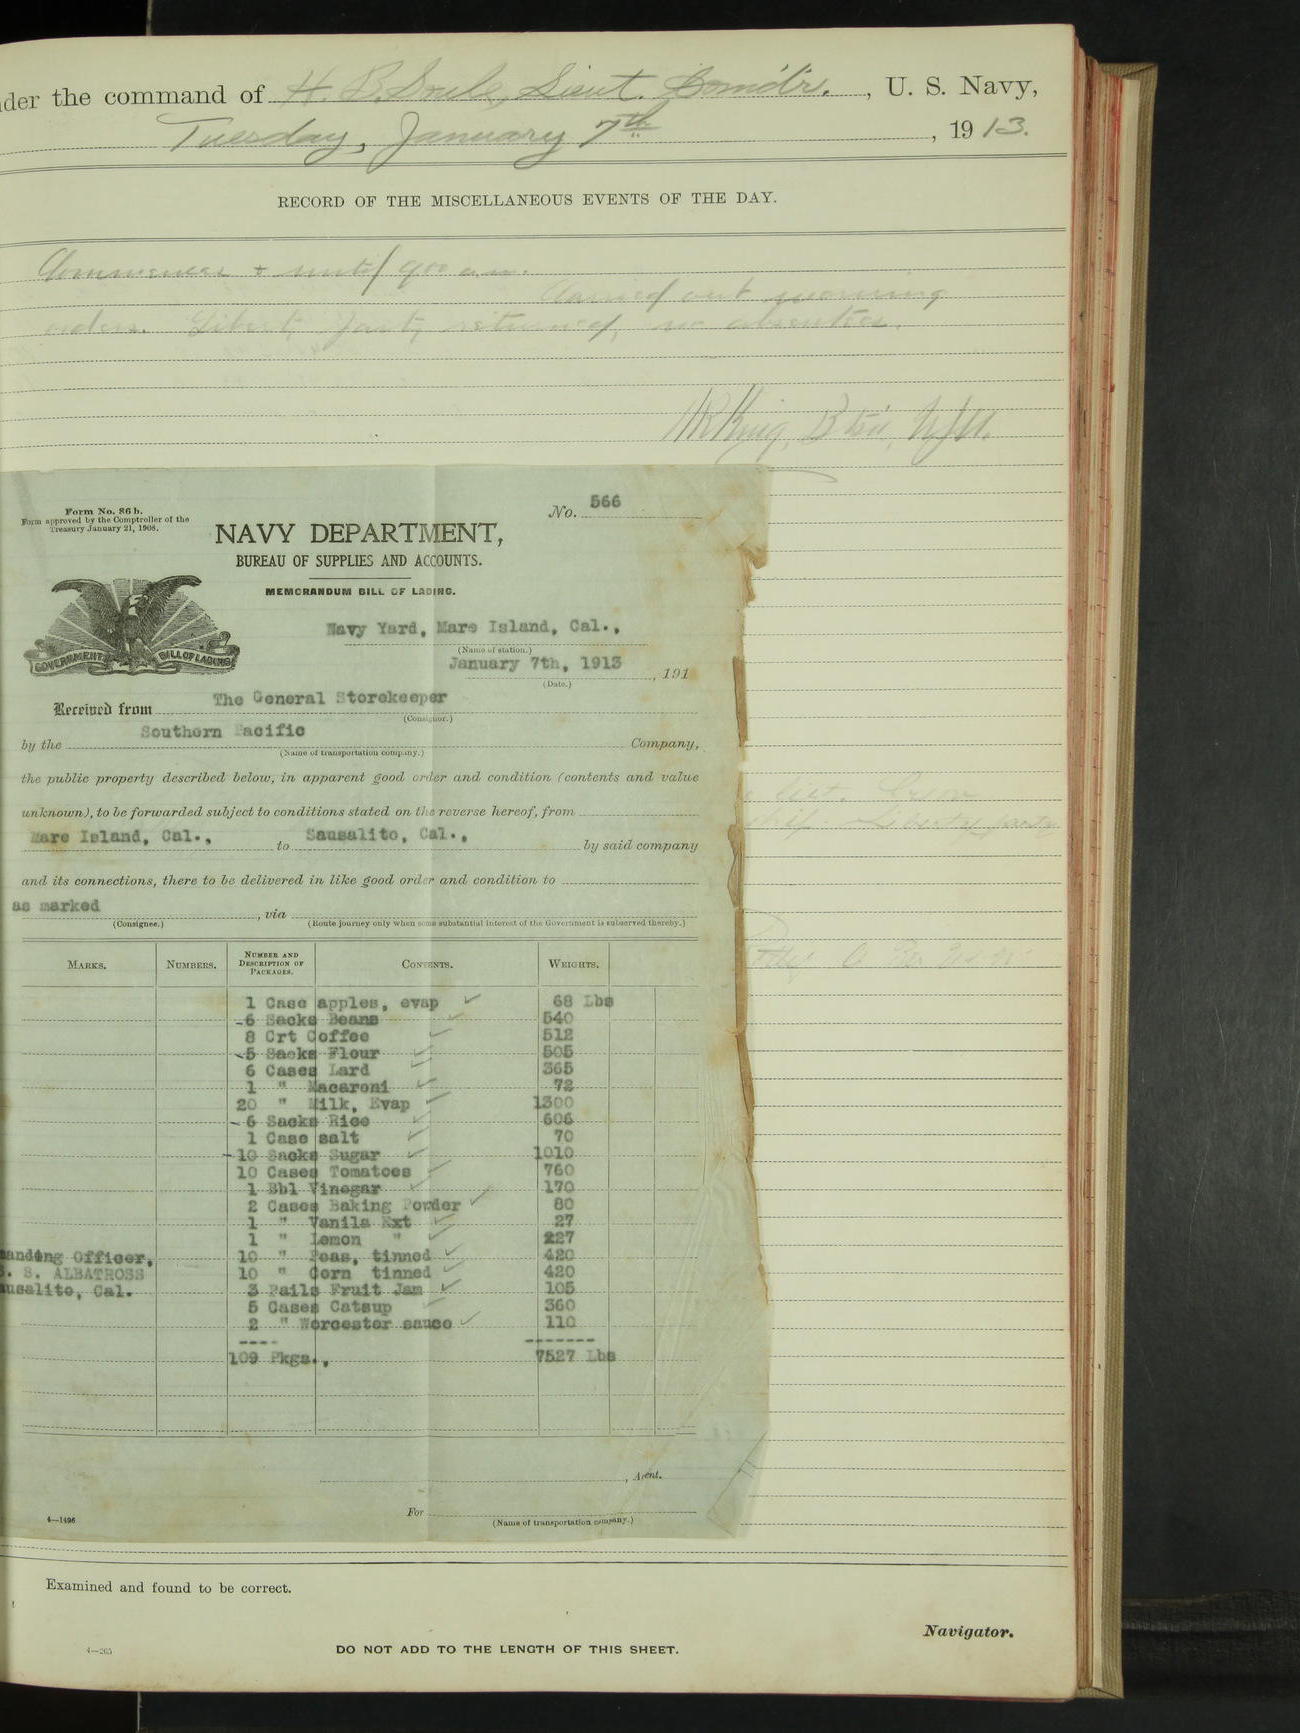 der the command of H. B. Soule, Lieut. Comd'r. , U. S. Navy,
Tuesday, January 7th , 1913.
RECORD OF THE MISCELLANEOUS EVENTS OF THE DAY.
Commences & until 9 00 a.m.
Carried out morning
orders. Liberty party returned, no absentees.
King, Btsn, U.S.N.
Form No. 86 b.
Form approved by the Comptroller of the
Treasury January 21, 1908.
No. 566
NAVY DEPARTMENT,
BUREAU OF SUPPLIES AND ACCOUNTS.
MEMORANDUM BILL OF LADING.
GOVERNMENT BILL OF LADING
Navy Yard, Mare Island, Cal.,
(Name of station.)
January 7th, 1913 , 191
(Date.)
Received from The General Storekeeper
(Consignor.)
by the Southern Pacific Company,
(Name of transportation company.)
the public property described below, in apparent good order and condition (contents and value
unknown), to be forwarded subject to conditions stated on the reverse hereof, from
Mare Island, Cal., to Sausalito, Cal., by said company
and its connections, there to be delivered in like good order and condition to
as marked , via
(Consignee.) (Route journey only when some substantial interest of the Government is subserved thereby.)
MARKS. NUMBERS. NUMBER AND DESCRIPTION OF PACKAGES. CONTENTS. WEIGHTS.
1 Case apples, evap 68 Lbs
6 Sacks Beans 540
8 Crt Coffee 512
5 Sacks Flour 505
6 Cases Lard 365
1 " Macaroni 72
20 " Milk, Evap 1300
6 Sacks Rice 606
1 Case salt 70
10 Sacks Sugar 1010
10 Cases Tomatoes 760
1 Bbl Vinegar 170
2 Cases Baking Powder 80
1 " Vanila Ext 27
1 " Lemon " 27
anding Officer, 10 " Peas, tinned 420
S. S. ALBATROSS 10 " Corn tinned 420
usalito, Cal. 3 Pails Fruit Jam 105
5 Cases Catsup 360
2 " Worcester sauce 110
109 Pkgs., 7527 Lbs
, Agent.
For
(Name of transportation company.)
4—1496
Liberty party
Examined and found to be correct.
Navigator.
4—265
DO NOT ADD TO THE LENGTH OF THIS SHEET.